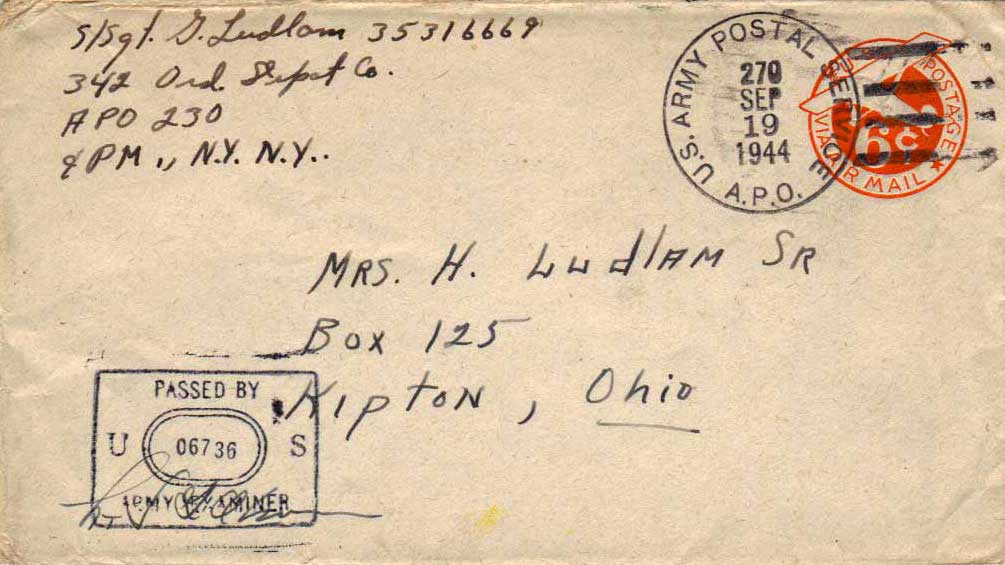 S/Sgt. G. Ludlam 35316669
342 Ord. Depot Co.
APO 230
% PM., N.Y. N.Y..
U.S. ARMY POSTAL SERVICE
270
SEP
19
1944
A.P.O.
U.S. POSTAGE
6c
VIA AIR MAIL
MRS. H. LUdlAM SR
Box 125
KIPTON, Ohio
PASSED BY
U 06736 S
ARMY EXAMINER